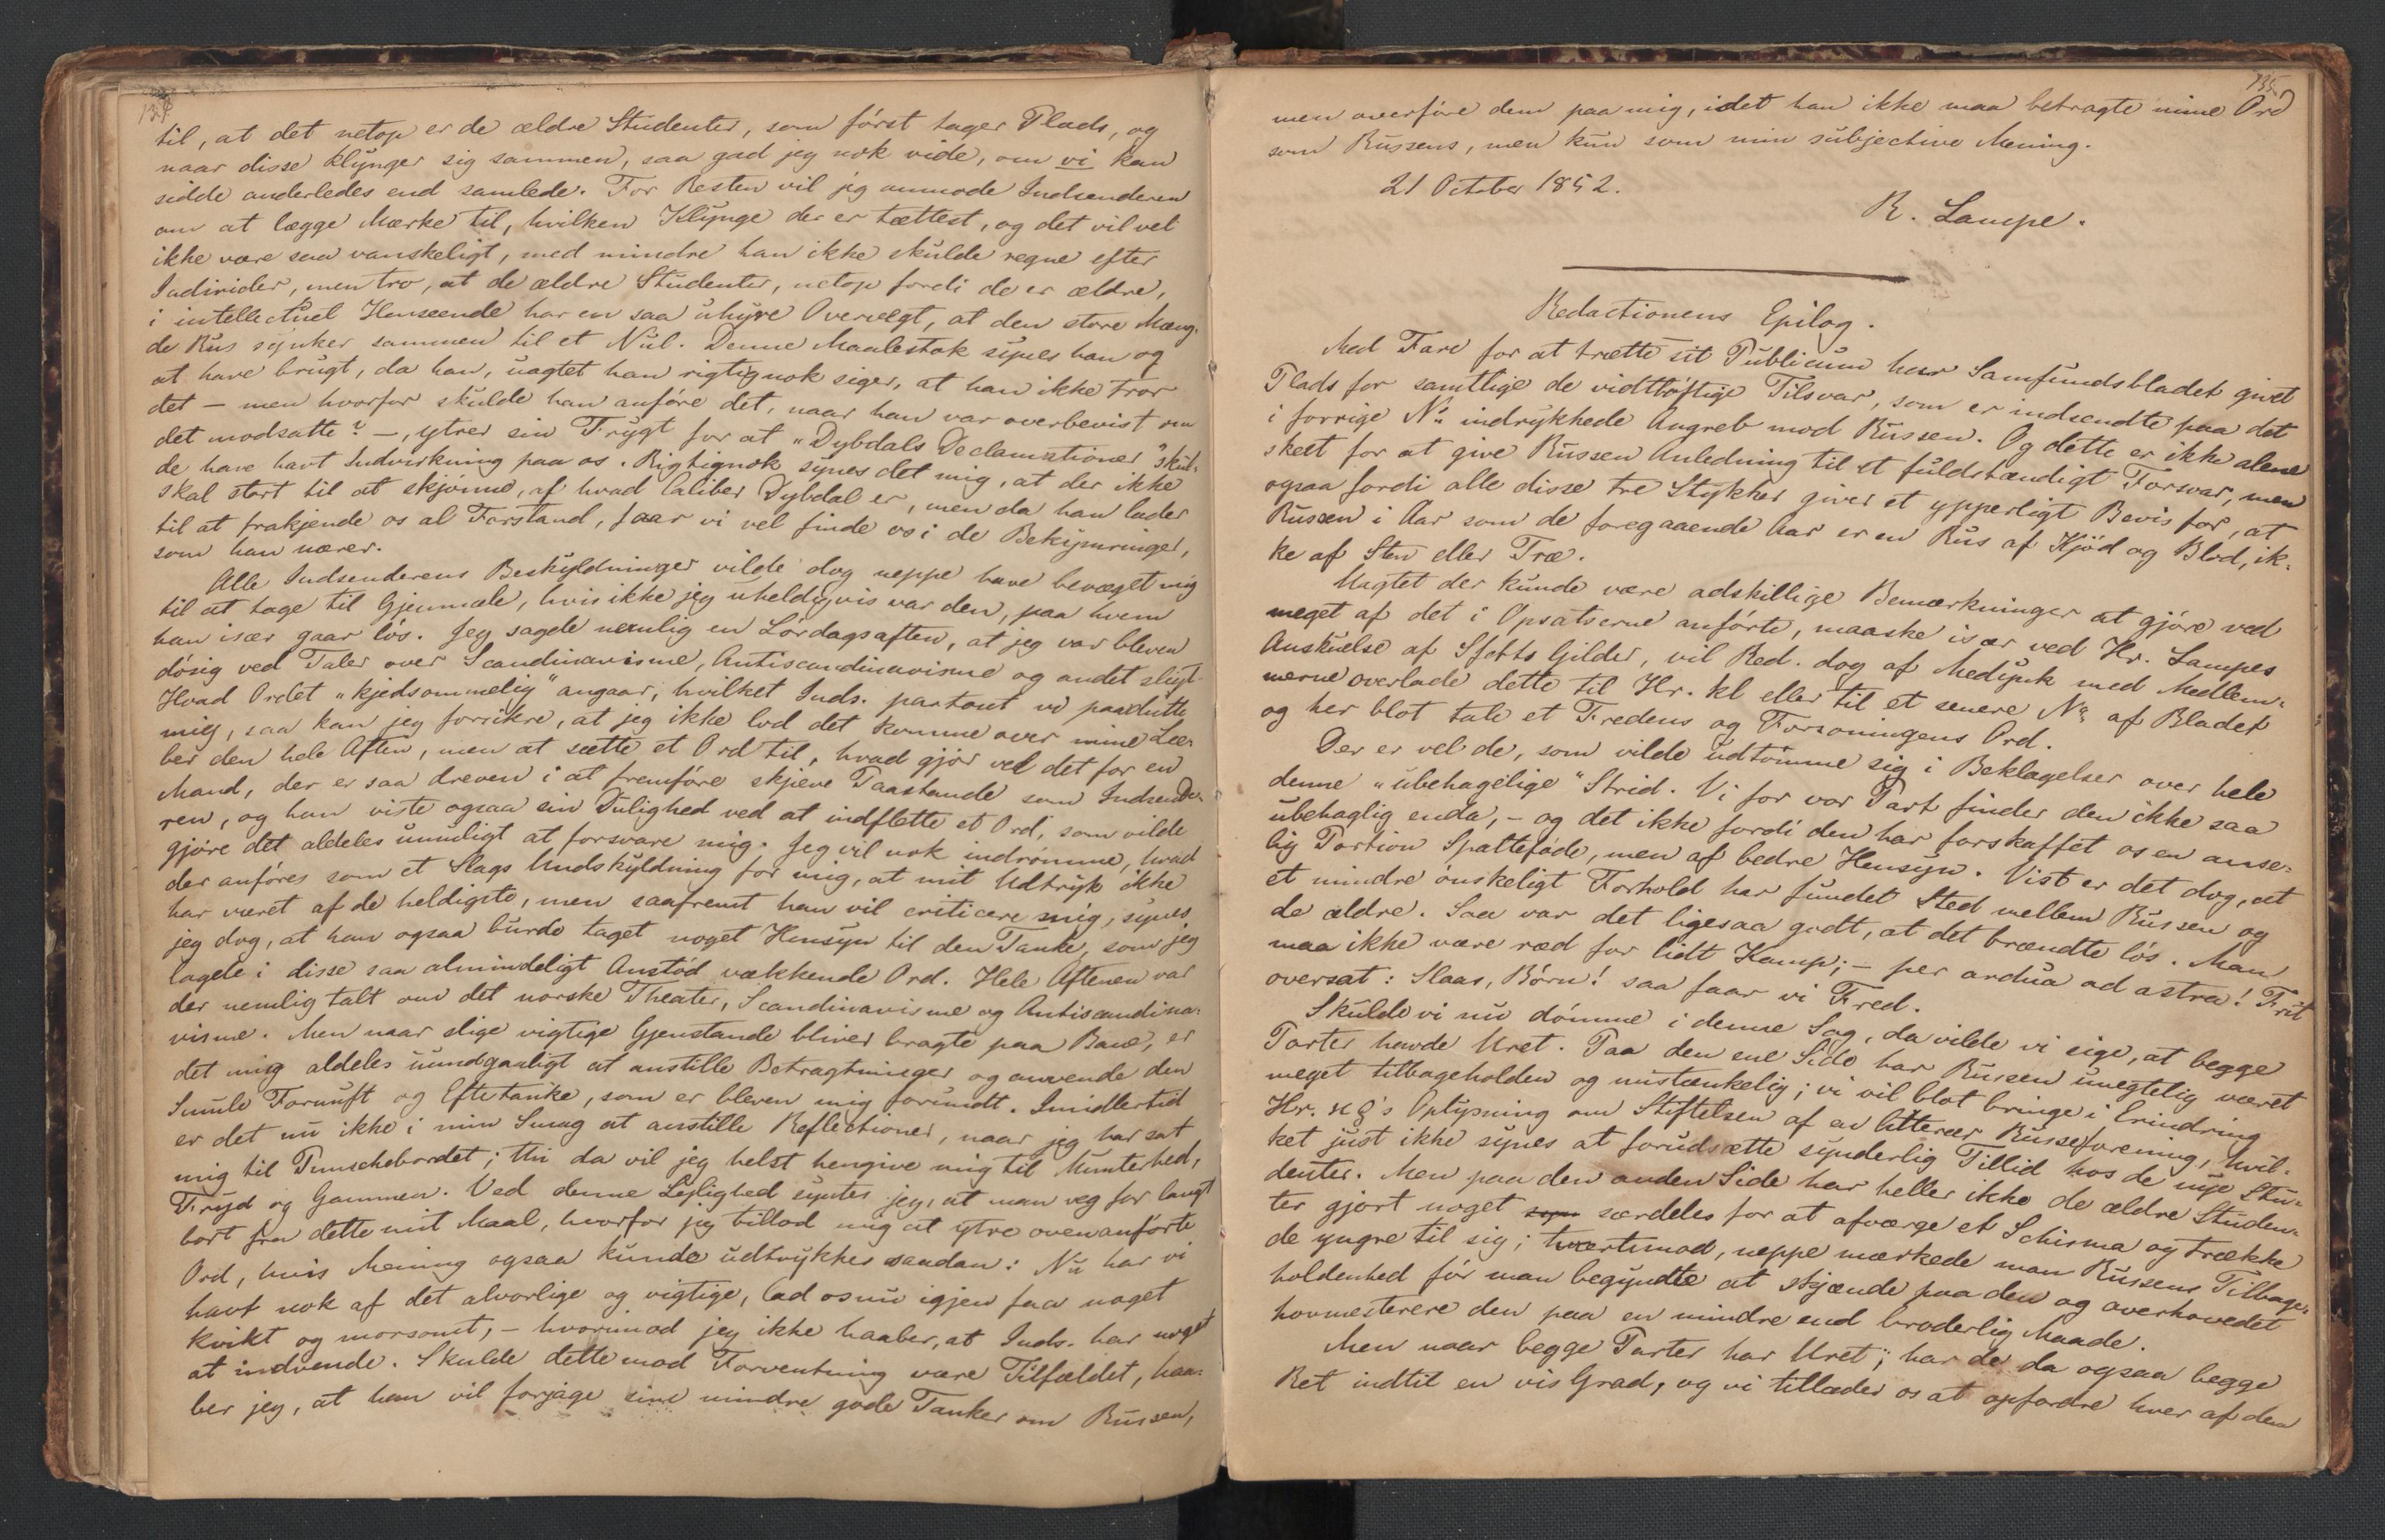 134
til, at det netop er de ældre Studenter, som först tager Plads, og
naar disse klynger sig sammen, saa gad jeg nok vide, om vi kan
sidde anderledes end samlede. For Resten vil jeg anmode Indsenderen
om at lægge Mærke til, hvilken Klynge der er tættest, og det vil vel
ikke være saa vanskeligt, med mindre han ikke skulde regne efter
Individer, men tro, at de ældre Studenter, netop fordi de er ældre,
i intellectuel Henseende har en saa uhyre Overvægt, at den store Mæng-
de Rus synker sammen til et Nul. Denne Maalestok synes han og
at have brugt, da han, uagtet han rigtignok siger, at han ikke tror
det – men hvorfor skulde han anföre det, naar han var overbevist om
det modsatte? –, ytrer sin Frygt for at "Dybdals Declamationer" skul-
de have havt Indvirkning paa os. Rigtignok synes det mig, at der ikke
skal stort til at skjönne, af hvad Caliber Dybdal er, men da han lader
til at frakjende os al Forstand, faar vi vel finde os i de Bekymringer,
som han nærer.
Alle Indsenderens Beskyldninger vilde dog neppe have bevæget mig
til at tage til Gjenmæle, hvis ikke jeg uheldigvis var den, paa hvem
han især gaar lös. Jeg sagde nemlig en Lördagsaften, at jeg var bleven
dösig ved Taler over Scandinavisme, Antiscandinavisme og andet sligt.
Hvad Ordet "kjedsommelig" angaar, hvilket Inds. partout vil paadutte
mig, saa kan jeg forsikre, at jeg ikke lod det komme over mine Læ-
ber den hele Aften, men at sætte et Ord til, hvad gjör vel det for en
Mand, der er saa dreven i at fremföre skjeve Paastande som Indsende-
ren, og han viste ogsaa sin Dulighed ved at indflette et Ord, som vilde
gjöre det aldeles umuligt at forsvare mig. Jeg vil nok indrömme, hvad
der anföres som et Slags Undskyldning for mig, at mit Udtryk ikke
har været af de heldigste, men saafremt han vil criticere mig, synes
jeg dog, at han ogsaa burde taget noget Hensyn til den Tanke, som jeg
lagde i disse saa almindeligt Anstöd vækkende Ord. Hele Aftenen var
der nemlig talt om det norske Theater, Scandinavisme og Antiscandina-
visme. Men naar slige vigtige Gjenstande bliver bragte paa Bane, er
det mig aldeles uundgaaligt at anstille Betragtninger og anvende den
Smule Fornuft og Eftertanke, som er bleven mig forundt. Imidlertid
er det nu ikke i min Smag at anstille Reflectioner, naar jeg har sat
mig til Punschebordet; thi da vil jeg helst hengive mig til Munterhed,
Fryd og Gammen. Ved denne Lejlighed syntes jeg, at man veg for langt
bort fra dette mit Maal, hvorfor jeg tillod mig at ytre ovenanförte
Ord, hvis Mening ogsaa kunde udtrykkes saadan: Nu har vi
havt nok af det alvorlige og vigtige, lad os nu igjen faa noget
kvikt og morsomt, – hvorimod jeg ikke haaber, at Inds. har noget
at indvende. Skulde dette mod Forventning være Tilfældet, haa-
ber jeg, at han vil forjage sine mindre gode Tanker om Russen,
135.
men overföre dem paa mig, idet han ikke maa betragte mine Ord
som Russens, men kun som min subjective Mening.
21 October 1852.
R. Lampe.
Redactionens Epilog.
Med Fare for at trætte sit Publicum har Samfundsbladet givet
Plads for samtlige de vidtlöftige Tilsvar, som er indsendte paa det
i forrige No. indrykkede Angreb mod Russen. Og dette er ikke alene
skeet for at give Russen Anledning til et fuldstændigt Forsvar, men
ogsaa fordi alle disse tre Stykker giver et ypperligt Bevis for, at
Russen i Aar som de foregaaende Aar er en Rus af Kjöd og Blod, ik-
ke af Sten eller Træ.
Uagtet der kunde være adskillige Bemærkninger at gjöre ved
meget af det i Opsatserne anförte, maaske især ved Hr. Lampes
Anskuelse af Gilder, vil Red. dog af Medynk med Medlem-
merne overlade dette til Hr. kl eller til et senere No. af Bladet
og her blot tale et Fredens og Forsoningens Ord.
Der er vel de, som vilde udtömme sig i Beklagelser over hele
denne "ubehagelige" Strid. Vi for vor Part finder den ikke saa
ubehaglig enda, – og det ikke fordi den har forskaffet os en anse-
lig Portion Spalteföde, men af bedre Hensyn. Vist er det dog, at
et mindre önskeligt Forhold har fundet Sted mellem Russen og
de ældre. Saa var det ligesaa godt, at det brændte lös. Man
maa ikke være ræd for lidt Kamp; – per ardua ad astra! Frit
oversat: Slaas, Börn! saa faar vi Fred.
Skulde vi nu dömme i denne Sag, da vilde vi sige, at begge
Parter havde Uret. Paa den ene Side har Russen unegtelig været
meget tilbageholden og mistænkelig; vi vil blot bringe i Erindring
Hr. Oplysning om Stiftelsen af en litterær Russeforening, hvil-
ket just ikke synes at forudsætte synderlig Tillid hos de nye Stu-
denter. Men paa den anden Side har heller ikke de ældre Studen-
ter gjort noget særdeles for at afværge et Schisma og trække
de yngre til sig; tvertimod, neppe mærkede man Russens Tilbage-
holdenhed för man begyndte at skjænde paa den og overhovedet
hovmesterere den paa en mindre end broderlig Maade.
Men naar begge Parter har Uret, har de da ogsaa begge
Ret indtil en vis Grad, og vi tillader os at opfordre hver af dem